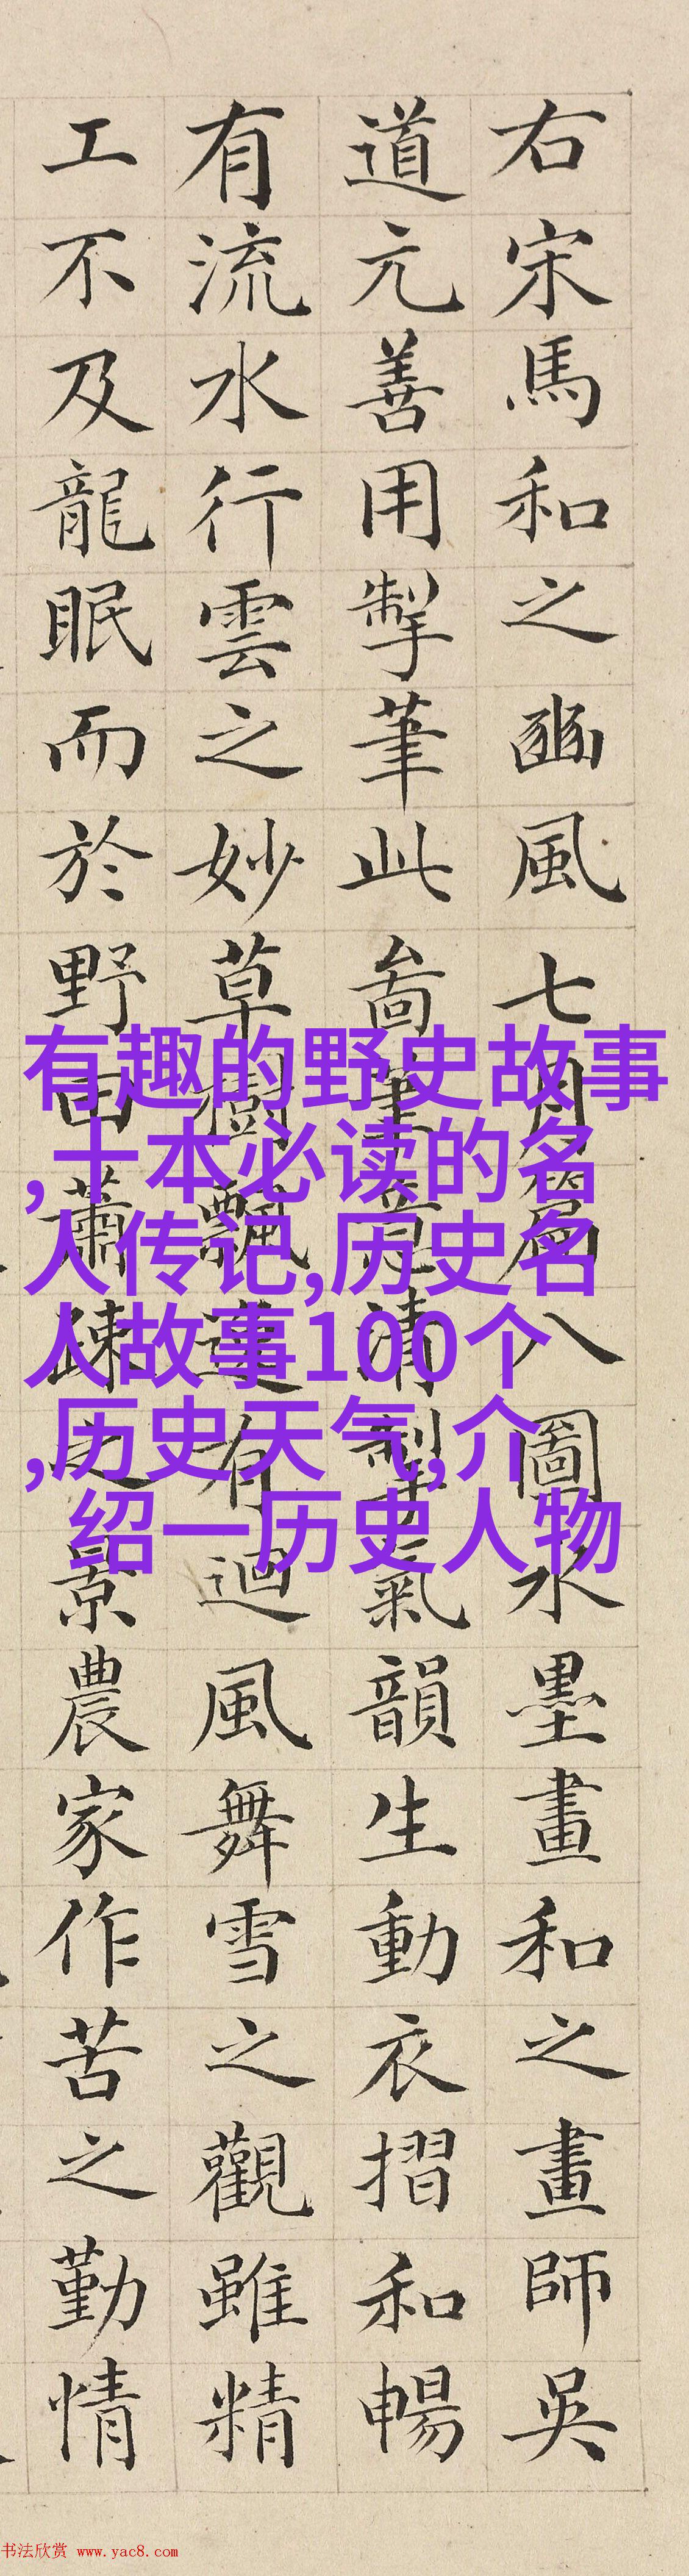 右宋馬和之豳風七月篇八圖水墨畫和之畫師吳
道元善用掣筆此啚筆意清製氣韻生動衣摺和暢
有流水行雲之妙草樹飄蓬有迴風舞雪之觀雖精
工不及龍眠而於野田蕭疎之景農家作苦之勤情
有趣的野史故事
,十本必读的名
人传记,历史名
人故事100个
,历史天气,介
绍一历史人物
书法欣赏 www.yac8.com